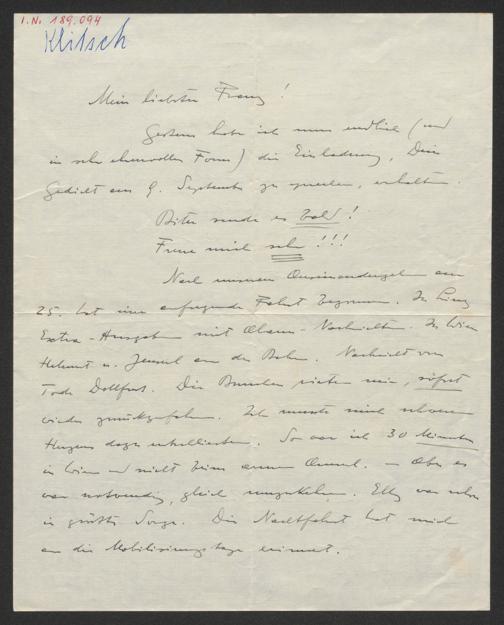 I.N. 189.094
Klitsch
Mein liebster Franz!
Gestern habe ich nun endlich (und
in sehr ehrenvoller Form) die Einladung, Dein
Gedicht am 9. September zu sprechen, erhalten.
Bitte sende es bald!
Freue mich sehr!!!
Nach unserem Auseinandergehen am
25. hat eine aufregende Fahrt begonnen. In Linz
Extra-Ausgaben mit Alarm-Nachrichten. In Wien
Helmut u. an der Bahn. Nachricht vom
Tode Dollfuss. Die rieten mir, sofort
wieder zurückzufahren. Ich musste mich schweren
Herzens dazu entschliessen. So war ich 30 Minuten
in Wien und nicht beim armen – Aber es
war notwendig, gleich umzukehren. Elly war schon
in größter Sorge. Die Nachtfahrt hat mich
an die Mobilisierungstage erinnert.